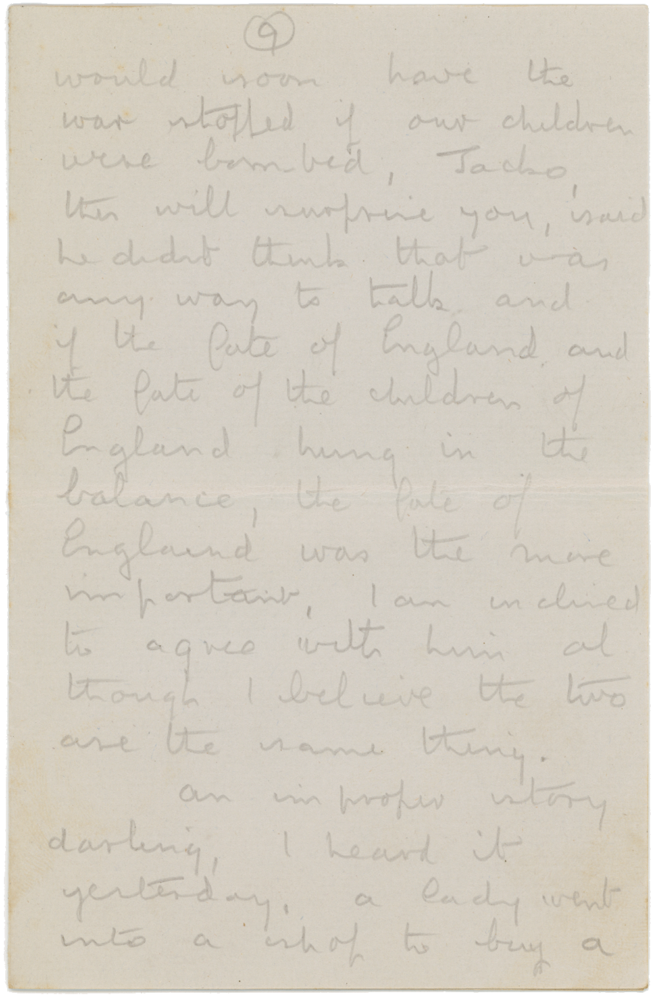 9
would soon have the
war stopped if our children
were bombed, Jacko,
this will surprise you, said
he didnt think that was
any way to talk and
if the fate of England and
the fate of the children of
England hung in the
balance, the fate of
England was the more
important, I am inclined
to agree with him al
though I believe the two
are the same thing.
an improper story
darling, I heard it
yesterday. a lady went
into a shop to buy a